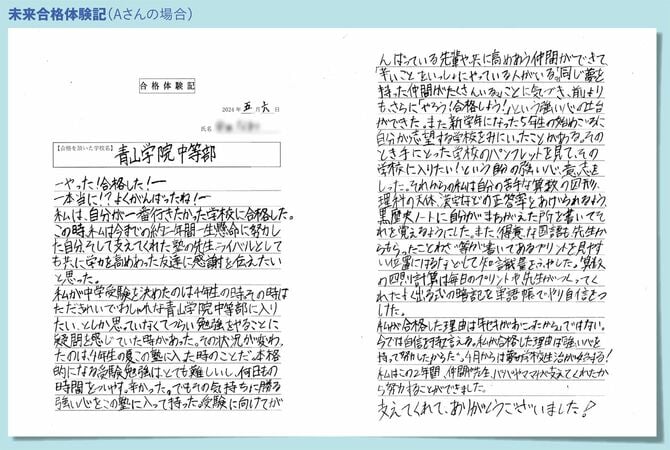 未来合格体験記(Aさんの場合)
合格体験記
2024年 五月 六日
氏名
【合格を頂いた学校名】
青山学院中等部
ーやった!合格した!ー
ー本当に!?よくがんばったね!ー
私は、自分が一番行きたかった学校に合格した。
この時、私は今までの約一年間一生懸命に努力し
た自分、そして支えてくれた塾の先生、ライバルとして
も共に学力を高めあった友達に感謝を伝えたい
と思った。
私が中学受験を決めたのは4年生の時。その時は
ただきれいでおしゃれな青山学院中等部に入り
たい、としか思っていなくてつらい勉強をやることに
疑問を感じていた時があった。その状況が変わっ
たのは、4年生の夏この塾に入った時のことだ。本格
的になる受験勉強は、とても難しいし、何日もの
時間をついやす。辛かった。でもその気持ちに勝る
強い心をこの塾に入って持った。受験に向けてが
んばっている先輩や、共に高めあう仲間ができて、
「辛いことをいっしょにやっている人がいる。同じ夢を
持った仲間がたくさんいる。」ことに気づき、前より
も、さらに「やろう!合格しよう!」という強い心の土台
ができた。また新学年になった5年生の始めごろに
自分が志望する学校をみにいったことがある。その
とき手にとった学校のパンフレットを見て、その
学校に入りたい!という自分の強い心、意志を
しった。それからの私は自分の苦手な算数の図形、
理科の天体、などの正答率をあげられるよう、
黒歴史ノートに自分がまちがえた所を書いてそ
れを覚えるようにした。また得意な国語も先生か
らもらったことわざ等が書いてあるプリントを見やす
い位置にはるなどとして知識量をふやした。算数
の四則計算は毎日のプリントや先生がつくってく
れたよく出る式の暗記を単語帳でやり自信をつ
けた。
私が合格した理由は奇せきがおこったから。ではない。
今では自信を持て言える。私が合格した理由は強い心を
持って努力したからだ。4月からは夢の学校生活が始まる!
私はこの2年間、仲間や先生、パパやママが支えてくれたから
努力することができました。
支えてくれて、ありがとうございました!